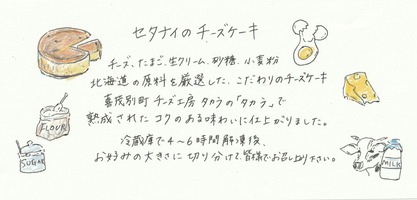 セタナイのチーズケーキ
チーズ、たまご、生クリーム、砂糖、小麦粉
北海道の原料を厳選した、こだわりのチーズケーキ
喜茂別町 チーズ工房 タカラの「タカラ」で
熟成された コクのある味わいに仕上がりました。
冷蔵庫で4〜6時間解凍後、
お好みの大きさに切り分けて、皆様でお召し上がり下さい。
FLOUR
SUGAR
MILK